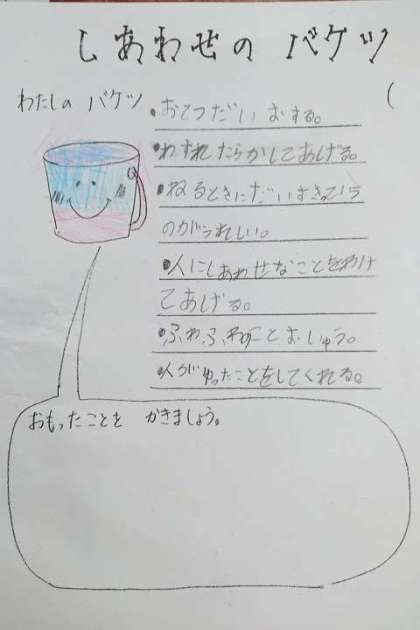 しあわせの バケツ
わたしの バケツ
・おてつだい おする。
・わすれたらかしてあげる。
・ねるときにだいすきっていう
のがうれしい。
・人にしあわせなことをわけ
てあげる。
・ふわふわことば
・人がゆったことをしてくれる。
おもったことを かきましょう。